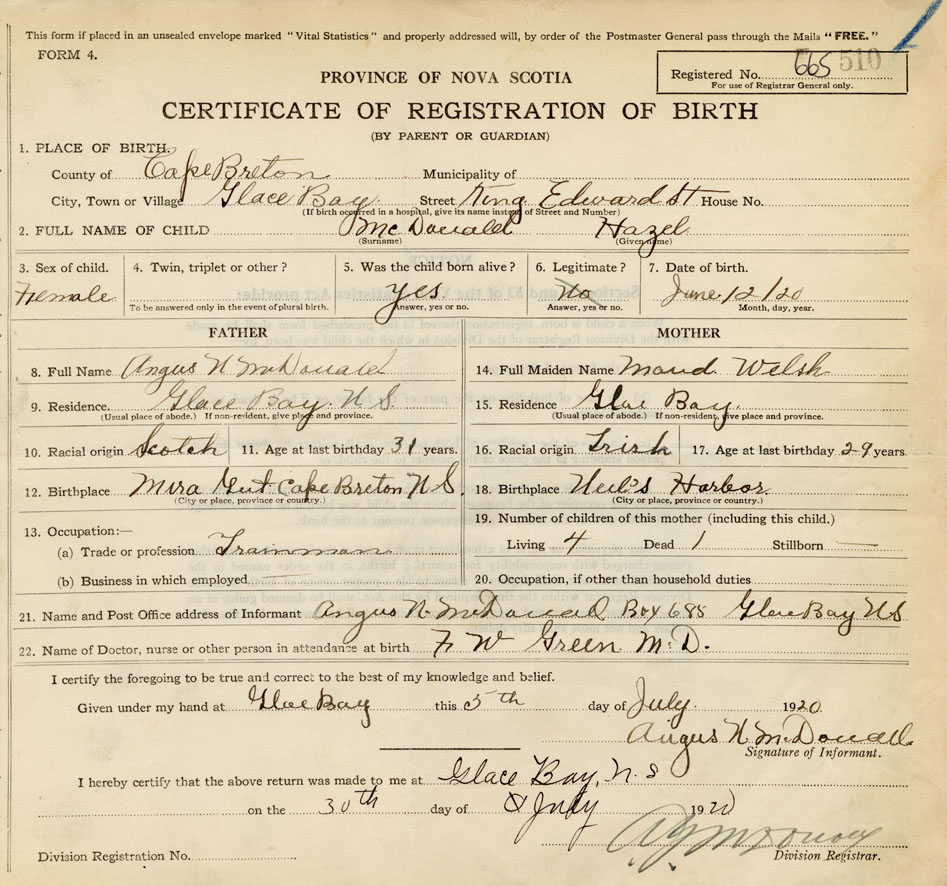 This form if placed in an unsealed envelope marked "Vital Statistics" and properly addressed will, by order of the Postmaster General pass through the Mails "FREE."
FORM 4.
PROVINCE OF NOVA SCOTIA
Registered No. 665 510
For use of Registrar General only.
CERTIFICATE OF REGISTRATION OF BIRTH
(BY PARENT OR GUARDIAN)
1. PLACE OF BIRTH.
County of Cape Breton Municipality of
City, Town or Village Glace Bay Street King Edward St House No.
(If birth occurred in a hospital, give its name instead of Street and Number)
2. FULL NAME OF CHILD McDonald Hazel
(Surname) (Given name)
3. Sex of child. 4. Twin, triplet or other? 5. Was the child born alive? 6. Legitimate? 7. Date of birth.
Female yes no June 12/20
To be answered only in the event of plural birth. Answer, yes or no. Answer, yes or no. Month, day, year.
FATHER MOTHER
8. Full Name Angus N McDonald 14. Full Maiden Name Maud Welsh
9. Residence. Glace Bay. N S. 15. Residence Glac Bay.
(Usual place of abode.) If non-resident, give place and province. (Usual place of abode.) If non-resident, give place and province.
10. Racial origin Scotch 11. Age at last birthday 31 years. 16. Racial origin Irish 17. Age at last birthday 29 years
12. Birthplace Mira Gut Cape Breton N S. 18. Birthplace Neil's Harbor
(City or place, province or country.) (City or place, province or country.)
13. Occupation:— 19. Number of children of this mother (including this child.)
(a) Trade or profession Trainman Living 4 Dead 1 Stillborn —
(b) Business in which employed — 20. Occupation, if other than household duties
21. Name and Post Office address of Informant Angus N. McDonald Box 685 Glace Bay N S.
22. Name of Doctor, nurse or other person in attendance at birth F W Green M.D.
I certify the foregoing to be true and correct to the best of my knowledge and belief.
Given under my hand at Glace Bay this 5th day of July 1920.
Angus N. McDonald
Signature of Informant.
I hereby certify that the above return was made to me at Glace Bay, N. S
on the 30th day of July 1920
Division Registration No. Division Registrar.